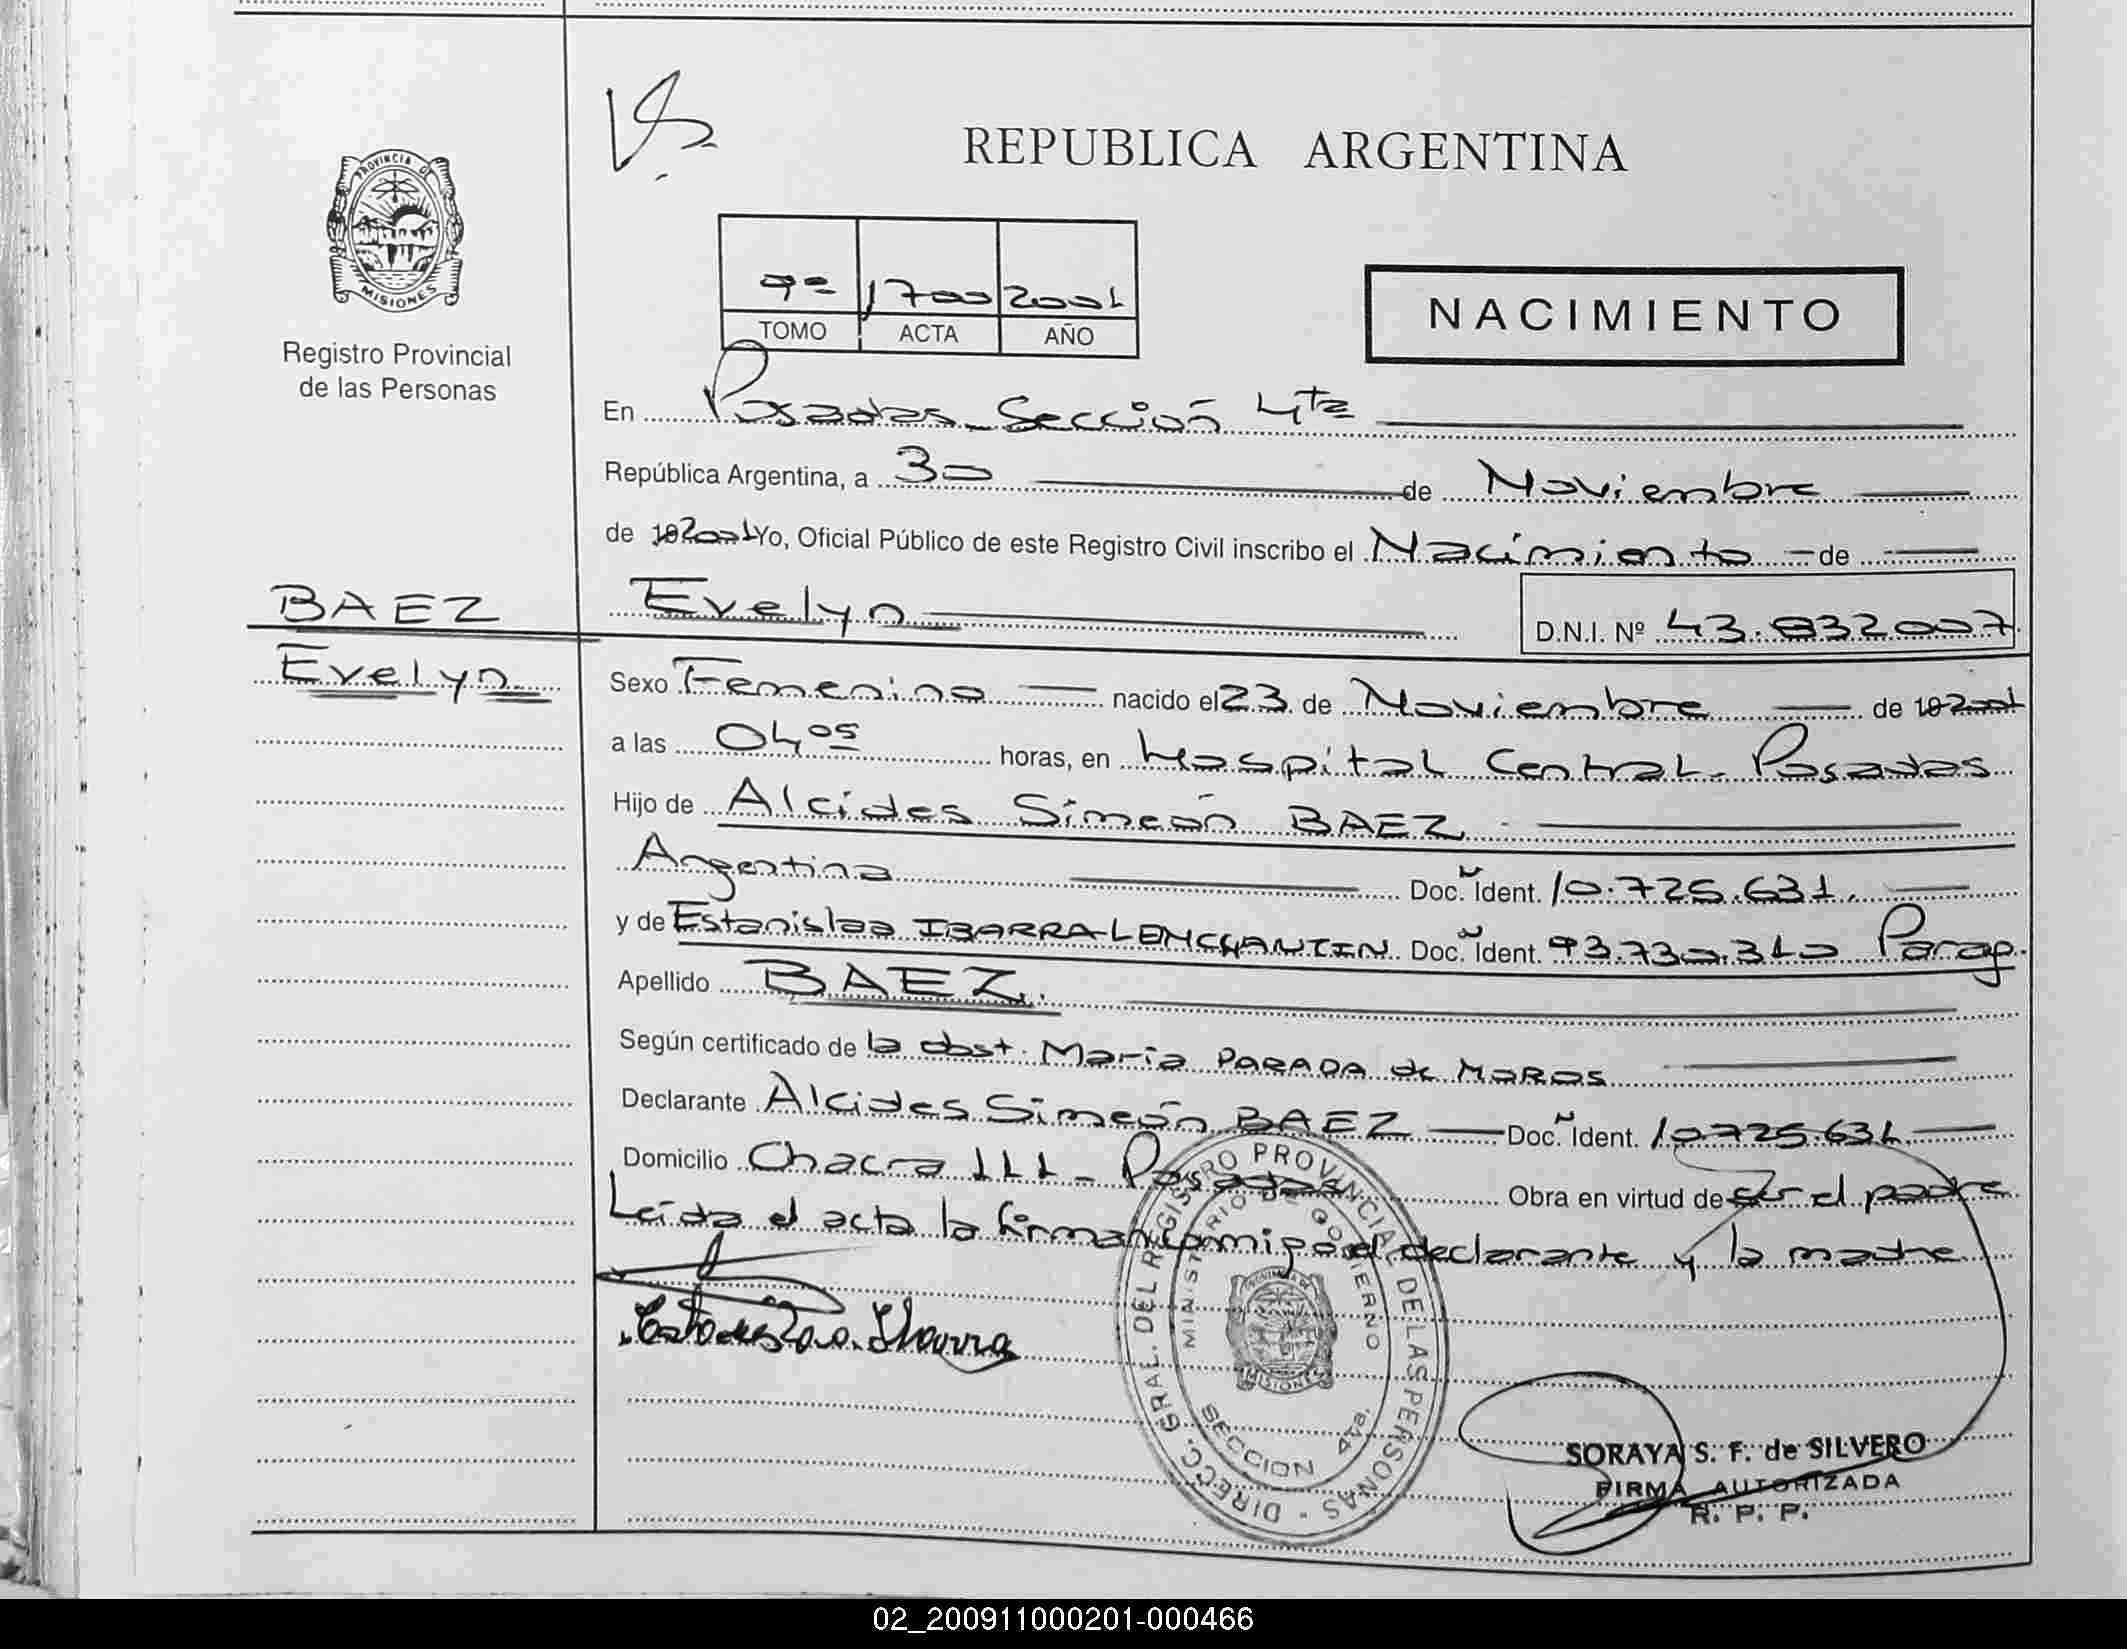 REPUBLICA ARGENTINA
PROVINCIA DE
MISIONES
Registro Provincial
de las Personas
9º 1700 2001
TOMO ACTA AÑO
NACIMIENTO
En Posadas - Sección 4ta
República Argentina, a 30 de Noviembre
de 19 2001 Yo, Oficial Público de este Registro Civil inscribo el Nacimiento de
BAEZ
Evelyn
Evelyn
D.N.I. Nº 43.832007
Sexo Femenino nacido el 23 de Noviembre de 19 2001
a las 04 05 horas, en Hospital Central - Posadas
Hijo de Alcides Simeón BAEZ
Argentina Doc. Ident. 10.725.631.
y de Estanislaa IBARRA LENCHANTIN Doc. Ident. 93.730.310 Parag.
Apellido BAEZ.
Según certificado de la obst. María PARADA de MOROS
Declarante Alcides Simeón BAEZ Doc. Ident. 10.725.631
Domicilio Chacra 111 - Posadas Obra en virtud de ser el padre
Leída el acta la firman conmigo el declarante y la madre
Ibarra
DIRECC. GRAL. DEL REGISTRO PROVINCIAL DE LAS PERSONAS
MINISTERIO DE GOBIERNO
PROVINCIA DE
MISIONES
SECCION 4ta.
SORAYA S. F. de SILVERO
FIRMA AUTORIZADA
R. P. P.
02_200911000201-000466